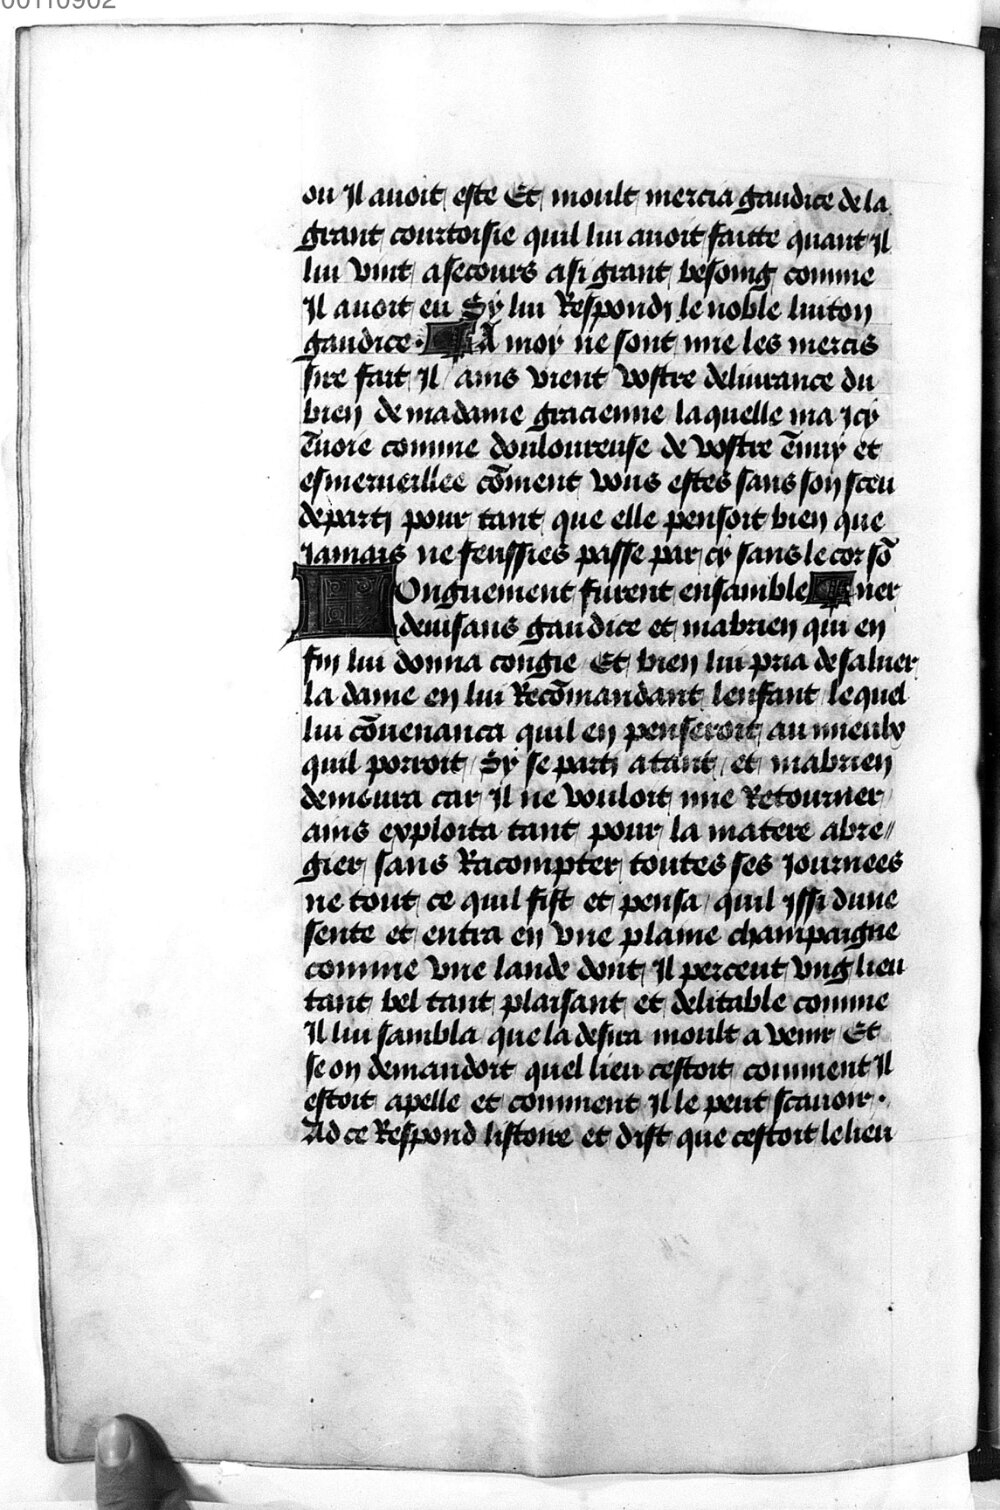 00110902
ou Il auoit este Et moult mercia gaudice de la
grant courtoisie quil lui auoit faitte quant Il
lui vint a secours a si grant besoing comme
Il auoit eu Sy lui Respondi le noble luiton
gaudice· A moy ne sont mie les mercis
sire fait Il / ains vient vostre deliurance du
bien de ma dame gracienne laquelle ma icy
ẽuoie comme douloureuse de vostre ẽnuy et
esmerueillee cõment vous estes sans son sceu
departi pour tant que elle pensoit bien que
iamais ne feussies passe par cy sans le cor sõ
Onguement furent ensamble ner
deuisans gaudice et mabrien qui en
fin lui donna congie Et bien lui pria de saluer
la dame en lui Recõmandant lenfant lequel
lui cõuenanca quil en penseroit au mieulx
quil porroit / Sy se parti a tant / et mabrien
demoura car Il ne vouloit mie Retourner
ains exploita tant pour la matere abre//
gier sans Racompter toutes ses journees
ne tout ce quil fist et pensa / quil issi dune
sente et entra en vne plaine champaigne
comme vne lande dont Il perceut vng lieu
tant bel tant plaisant et delitable comme
Il lui sambla que la desira moult a venir Et
se on demandoit quel lieu cestoit comment Il
estoit apelle et comment Il le peut scauoir·
Ad ce Respond listoire et dist que cestoit le lieu